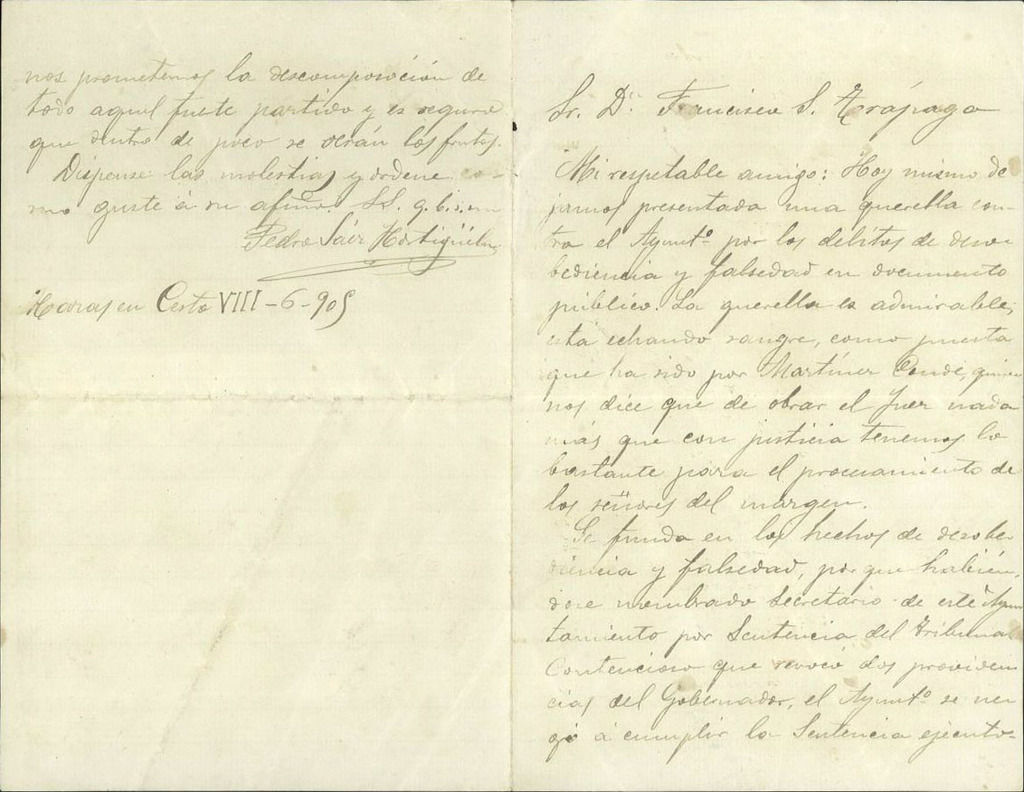 Sr. Dn. Francisco S. Trápaga
Mi respetable amigo: Hoy mismo de
jamos presentada una querella con-
tra el Ayuntº por los delitos de deso-
bediencia y falsedad en documento
público. La querella es admirable,
está echando sangre, como puesta
que ha sido por Martínez Conde, quien
nos dice que de obrar el Juez nada
más que con justicia tenemos lo
bastante para el procesamiento de
los señores del margen.
Se funda en los hechos de desobe-
diencia y falsedad, por que habién-
dose nombrado Secretario de este Ayun
tamiento por Sentencia del Tribunal
Contencioso que revocó dos providen
cias del Gobernador, el Ayuntº se ne
gó a cumplir la Sentencia ejecuto-
nos prometemos la descomposición de
todo aquel fuerte partido y es seguro
que dentro de poco se verán los frutos.
Dispense las molestias y ordene co-
mo guste á su afmo. SS. q.b.s.m
Pedro Sáiz
en Cesto VIII-6-905